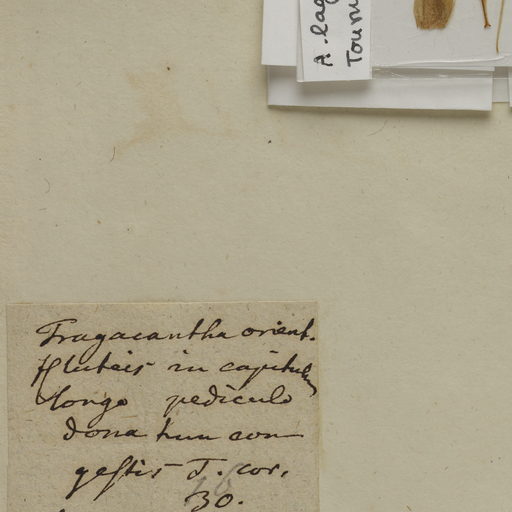 A. lag
Tourn
Tragacantha orient.
fl luteis in capitulum
longo pediculo
donatum con
gestis T. cor.
30.